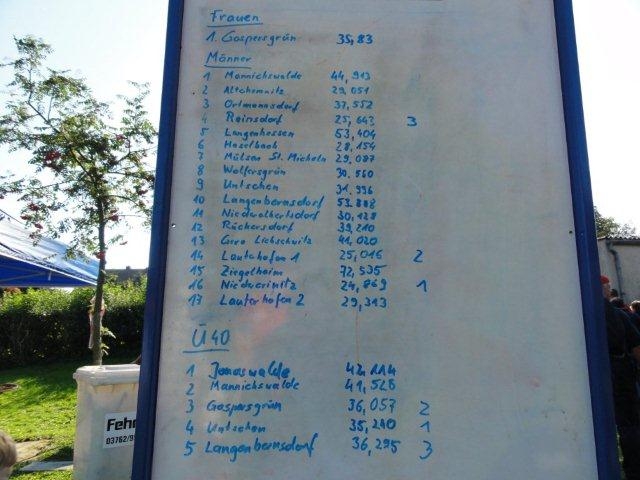 Frauen
1. Gospersgrün 35,83
Männer
1 Mannichswalde 44,913
2 Altchemnitz 29,051
3 Ortmannsdorf 37,552
4 Reinsdorf 25,643 3
5 Langenhessen 53,404
6 Haselbach 28,154
7 Mülsen St. Micheln 29,087
8 Wolfersgrün 30,560
9 Untschen 31,996
10 Langenbernsdorf 53,888
11 Niederalbertsdorf 30,128
12 Rückersdorf 39,210
13 Gera Liebschwitz 41,020
14 Lauterhofen 1 25,016 2
15 Ziegelheim 72,535
16 Niedercrinitz 24,869 1
17 Lauterhofen 2 29,313
Ü40
1 Jonaswalde 42,114
2 Mannichswalde 41,528
3 Gospersgrün 36,057 2
4 Untschen 35,210 1
5 Langenbernsdorf 36,295 3
Fehr
03762/95